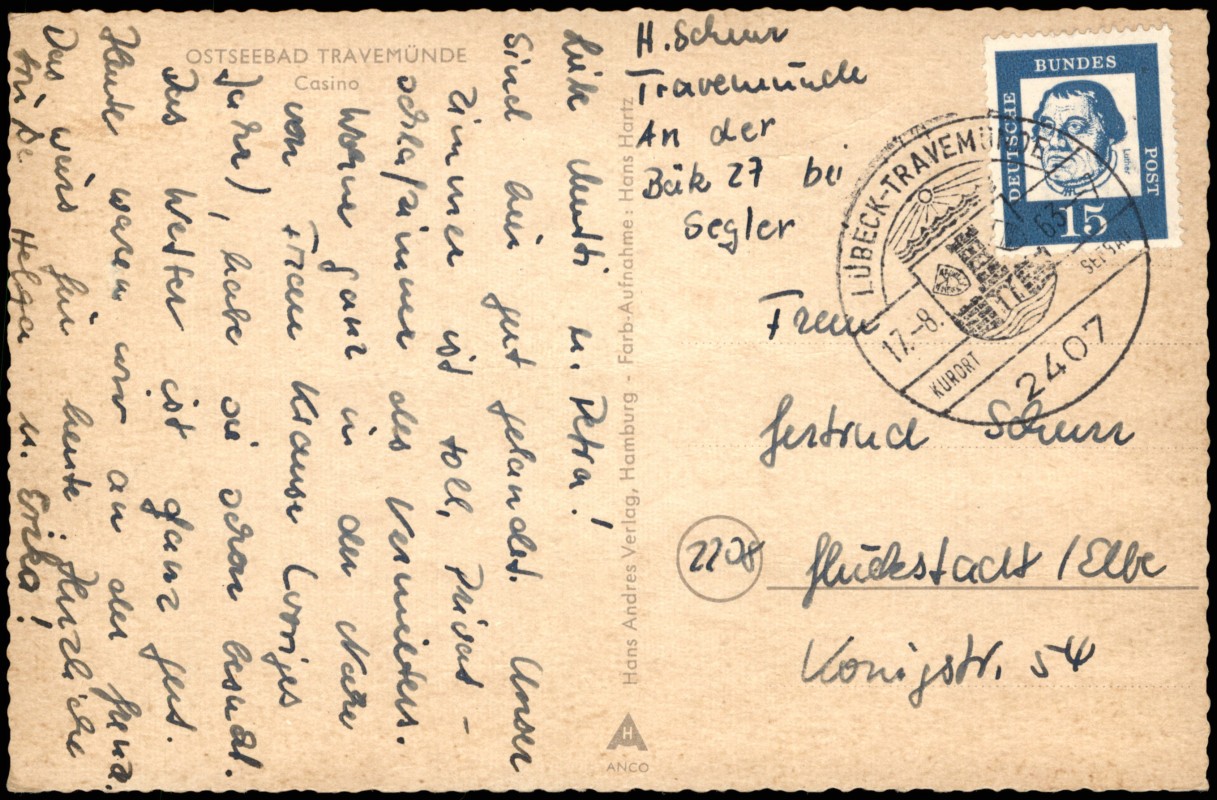 OSTSEEBAD TRAVEMÜNDE
Casino
Liebe Mutti u. Petra!
Sind hier gut gelandet. Unser
Zimmer ist toll, Privat-
schlafzimmer des Vermieters.
Wohne ganz in der Nähe
von Frau Krause (voriges
Jahr), habe sie schon besucht.
Das Wetter ist ganz gut.
Heute waren wir an der
Das wärs für heute. Herzliche
Helga u. Erika!
Hans Andres Verlag, Hamburg - Farb-Aufnahme: Hans Hartz
H
ANCO
H. Scheur
Travemünde
An der
Bäk 27 bei
Segler
DEUTSCHE
BUNDES
POST
Luther
15
LÜBECK-TRAVEMÜNDE
17.-8. 63-
KURORT
2407
Frau
Gertrud Scheur
2208 Glückstadt/Elbe
Königstr. 54